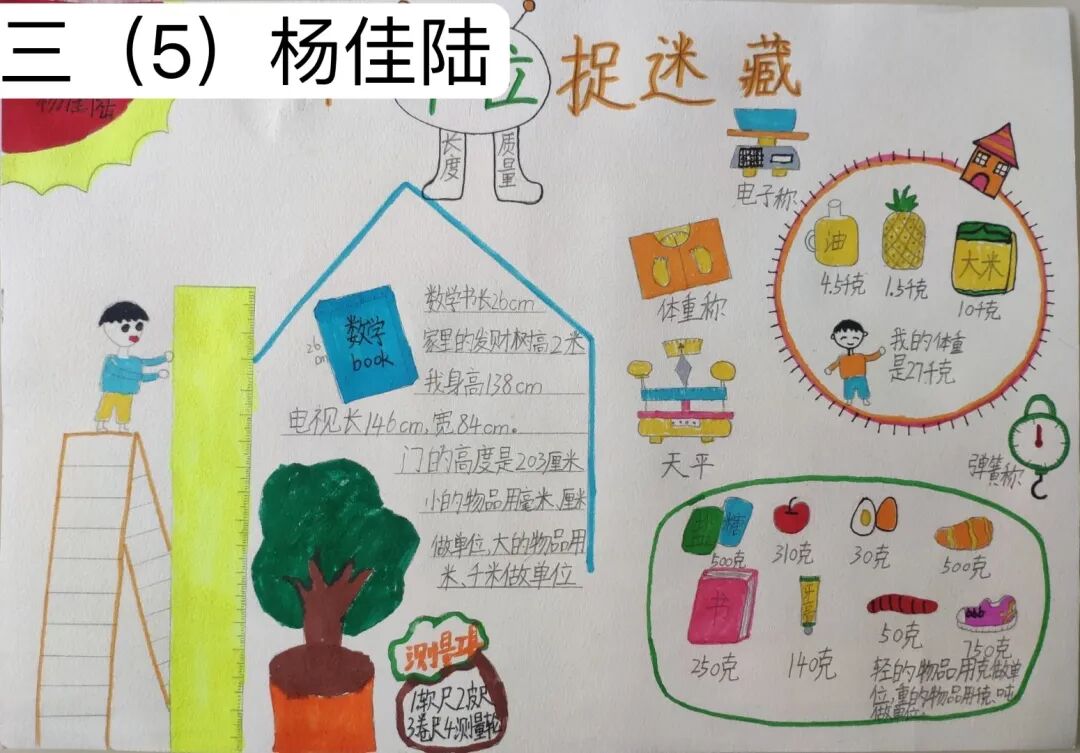 三（5）杨佳陆
杨佳陆
位捉迷藏
长度
质量
数学
book
26
cm
数学书长26cm
家里的发财树高2米
我身高138cm
电视长146cm,宽84cm。
门的高度是203厘米
小的物品用毫米、厘米
做单位,大的物品用
米、千米做单位
测量工具
1.软尺2.皮尺
3卷尺4.测量轮
电子称
体重称
天平
弹簧称
油
4.5千克
1.5千克
大米
10千克
我的体重
是27千克
盐
糖
500克
310克
30克
500克
书
250克
牙膏
140克
50克
750克
轻的物品用克做单
位,重的物品用千克、吨
做单位。